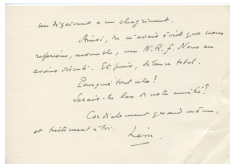 me déçoivent et me chagrinent.
Ainsi, tu m'avais écrit que nous
ensemble, une N.R.F. Nous en
avions discuté. Et puis, silence total.
Pourquoi tout cela ?
Serais-tu las de notre amitié ?
Cordialement quand même,
et tristement à toi.